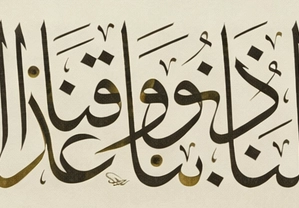 لنا ذنوبنا وقنا عذا